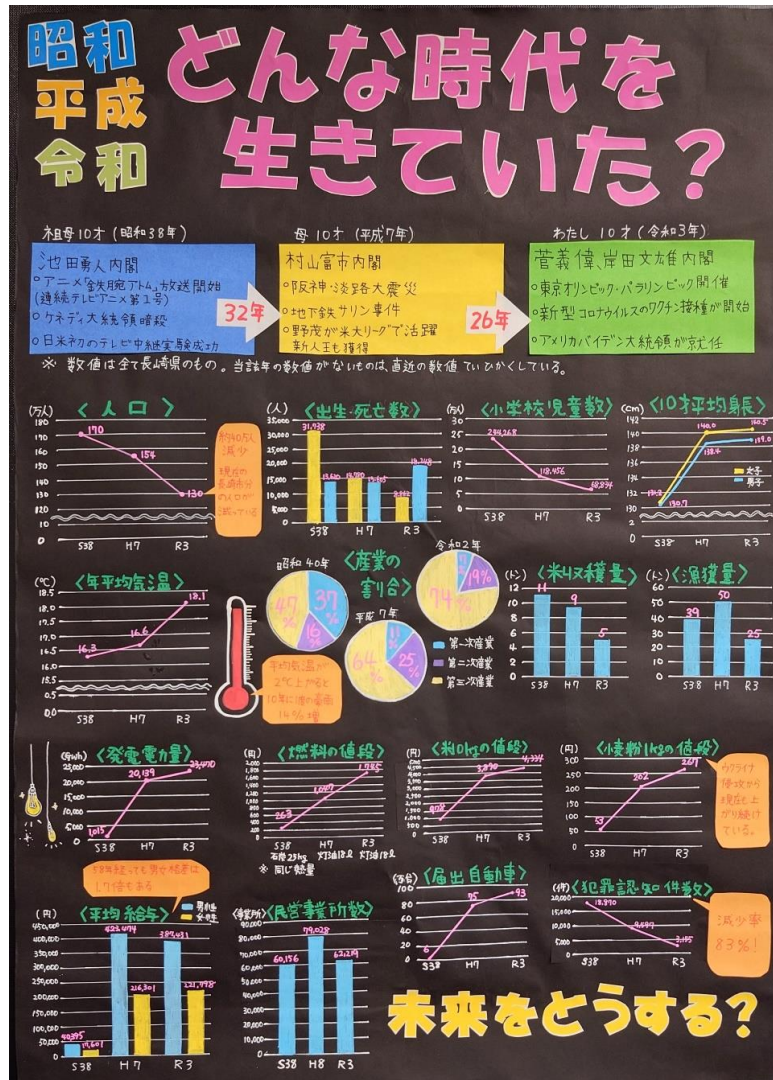 昭和
平成
令和
どんな時代を
生きていた？
祖母10才（昭和38年）
池田勇人内閣
○アニメ「鉄腕アトム」放送開始
(連続テレビアニメ第1号)
○ケネディ大統領暗殺
○日米初のテレビ中継実験成功
32年
母10才（平成7年）
村山富市内閣
○阪神・淡路大震災
○地下鉄サリン事件
○野茂が米大リーグで活躍
新人王も獲得
26年
わたし 10才（令和3年）
菅義偉、岸田文雄内閣
○東京オリンピック・パラリンピック開催
○新型コロナウイルスのワクチン接種が開始
○アメリカバイデン大統領が就任
※ 数値は全て長崎県のもの。当該年の数値がないものは、直近の数値でひかくしている。
〈人口〉
(万人)
180
170
160
150
140
130
120
10
0
170
154
130
S38 H7 R3
約40万人
減少
現在の
長崎市分
の人口が
減っている
〈出生・死亡数〉
(人)
35,000
30,000
25,000
20,000
15,000
10,000
5,000
0
31,938
S38 H7 R3
〈小学校児童数〉
(万人)
30
25
20
15
10
5
0
118,456
S38 H7 R3
〈10才平均身長〉
(cm)
142
140
138
136
134
132
130
2
0
140.0
138.4
130.7
140.5
139.0
女子
男子
S38 H7 R3
〈年平均気温〉
(℃)
18.5
18.0
17.5
17.0
16.5
16.0
15.5
0.5
0.0
16.3
16.6
18.1
S38 H7 R3
平均気温が
2℃上がると
14%増
〈産業の
割合〉
昭和40年
47%
37%
16%
平成7年
64%
11%
25%
令和2年
74%
19%
第一次産業
第二次産業
第三次産業
〈米収穫量〉
(トン)
12
10
8
6
4
2
0
11
9
5
S38 H7 R3
〈漁獲量〉
(トン)
60
50
40
30
20
10
0
39
50
25
S38 H7 R3
〈発電電力量〉
25,000
20,000
15,000
10,000
5,000
0
1,015
20,139
23,470
S38 H7 R3
〈燃料の値段〉
(円)
2,000
1,800
1,600
1,400
1,200
1,000
800
600
400
200
0
263
1,785
S38 H7 R3
灯油18ℓ 灯油18ℓ
※ 同じ熱量
〈米10kgの値段〉
(円)
3,890
4,334
S38 H7 R3
1kgの値段〉
(円)
300
250
200
150
100
50
0
53
202
267
S38 H7 R3
ウクライナ
侵攻から
現在も上
がり続けて
いる。
58年経っても男女格差は
1.7倍もある
〈平均給与〉
(円)
450,000
400,000
350,000
300,000
250,000
200,000
150,000
100,000
50,000
0
男性
女性
40,395
17,601
423,474
216,301
387,431
221,998
S38 H7 R3
〈民営事業所数〉
(事業所)
90,000
80,000
70,000
60,000
50,000
40,000
30,000
20,000
10,000
0
60,156
79,028
S38 H8 R3
〈届出自動車〉
(万台)
100
80
60
40
20
0
6
75
93
S38 H7 R3
〈犯罪認知件数〉
(件)
20,000
15,000
10,000
5,000
0
18,970
S38 H7 R3
減少率
83%！
未来をどうする？